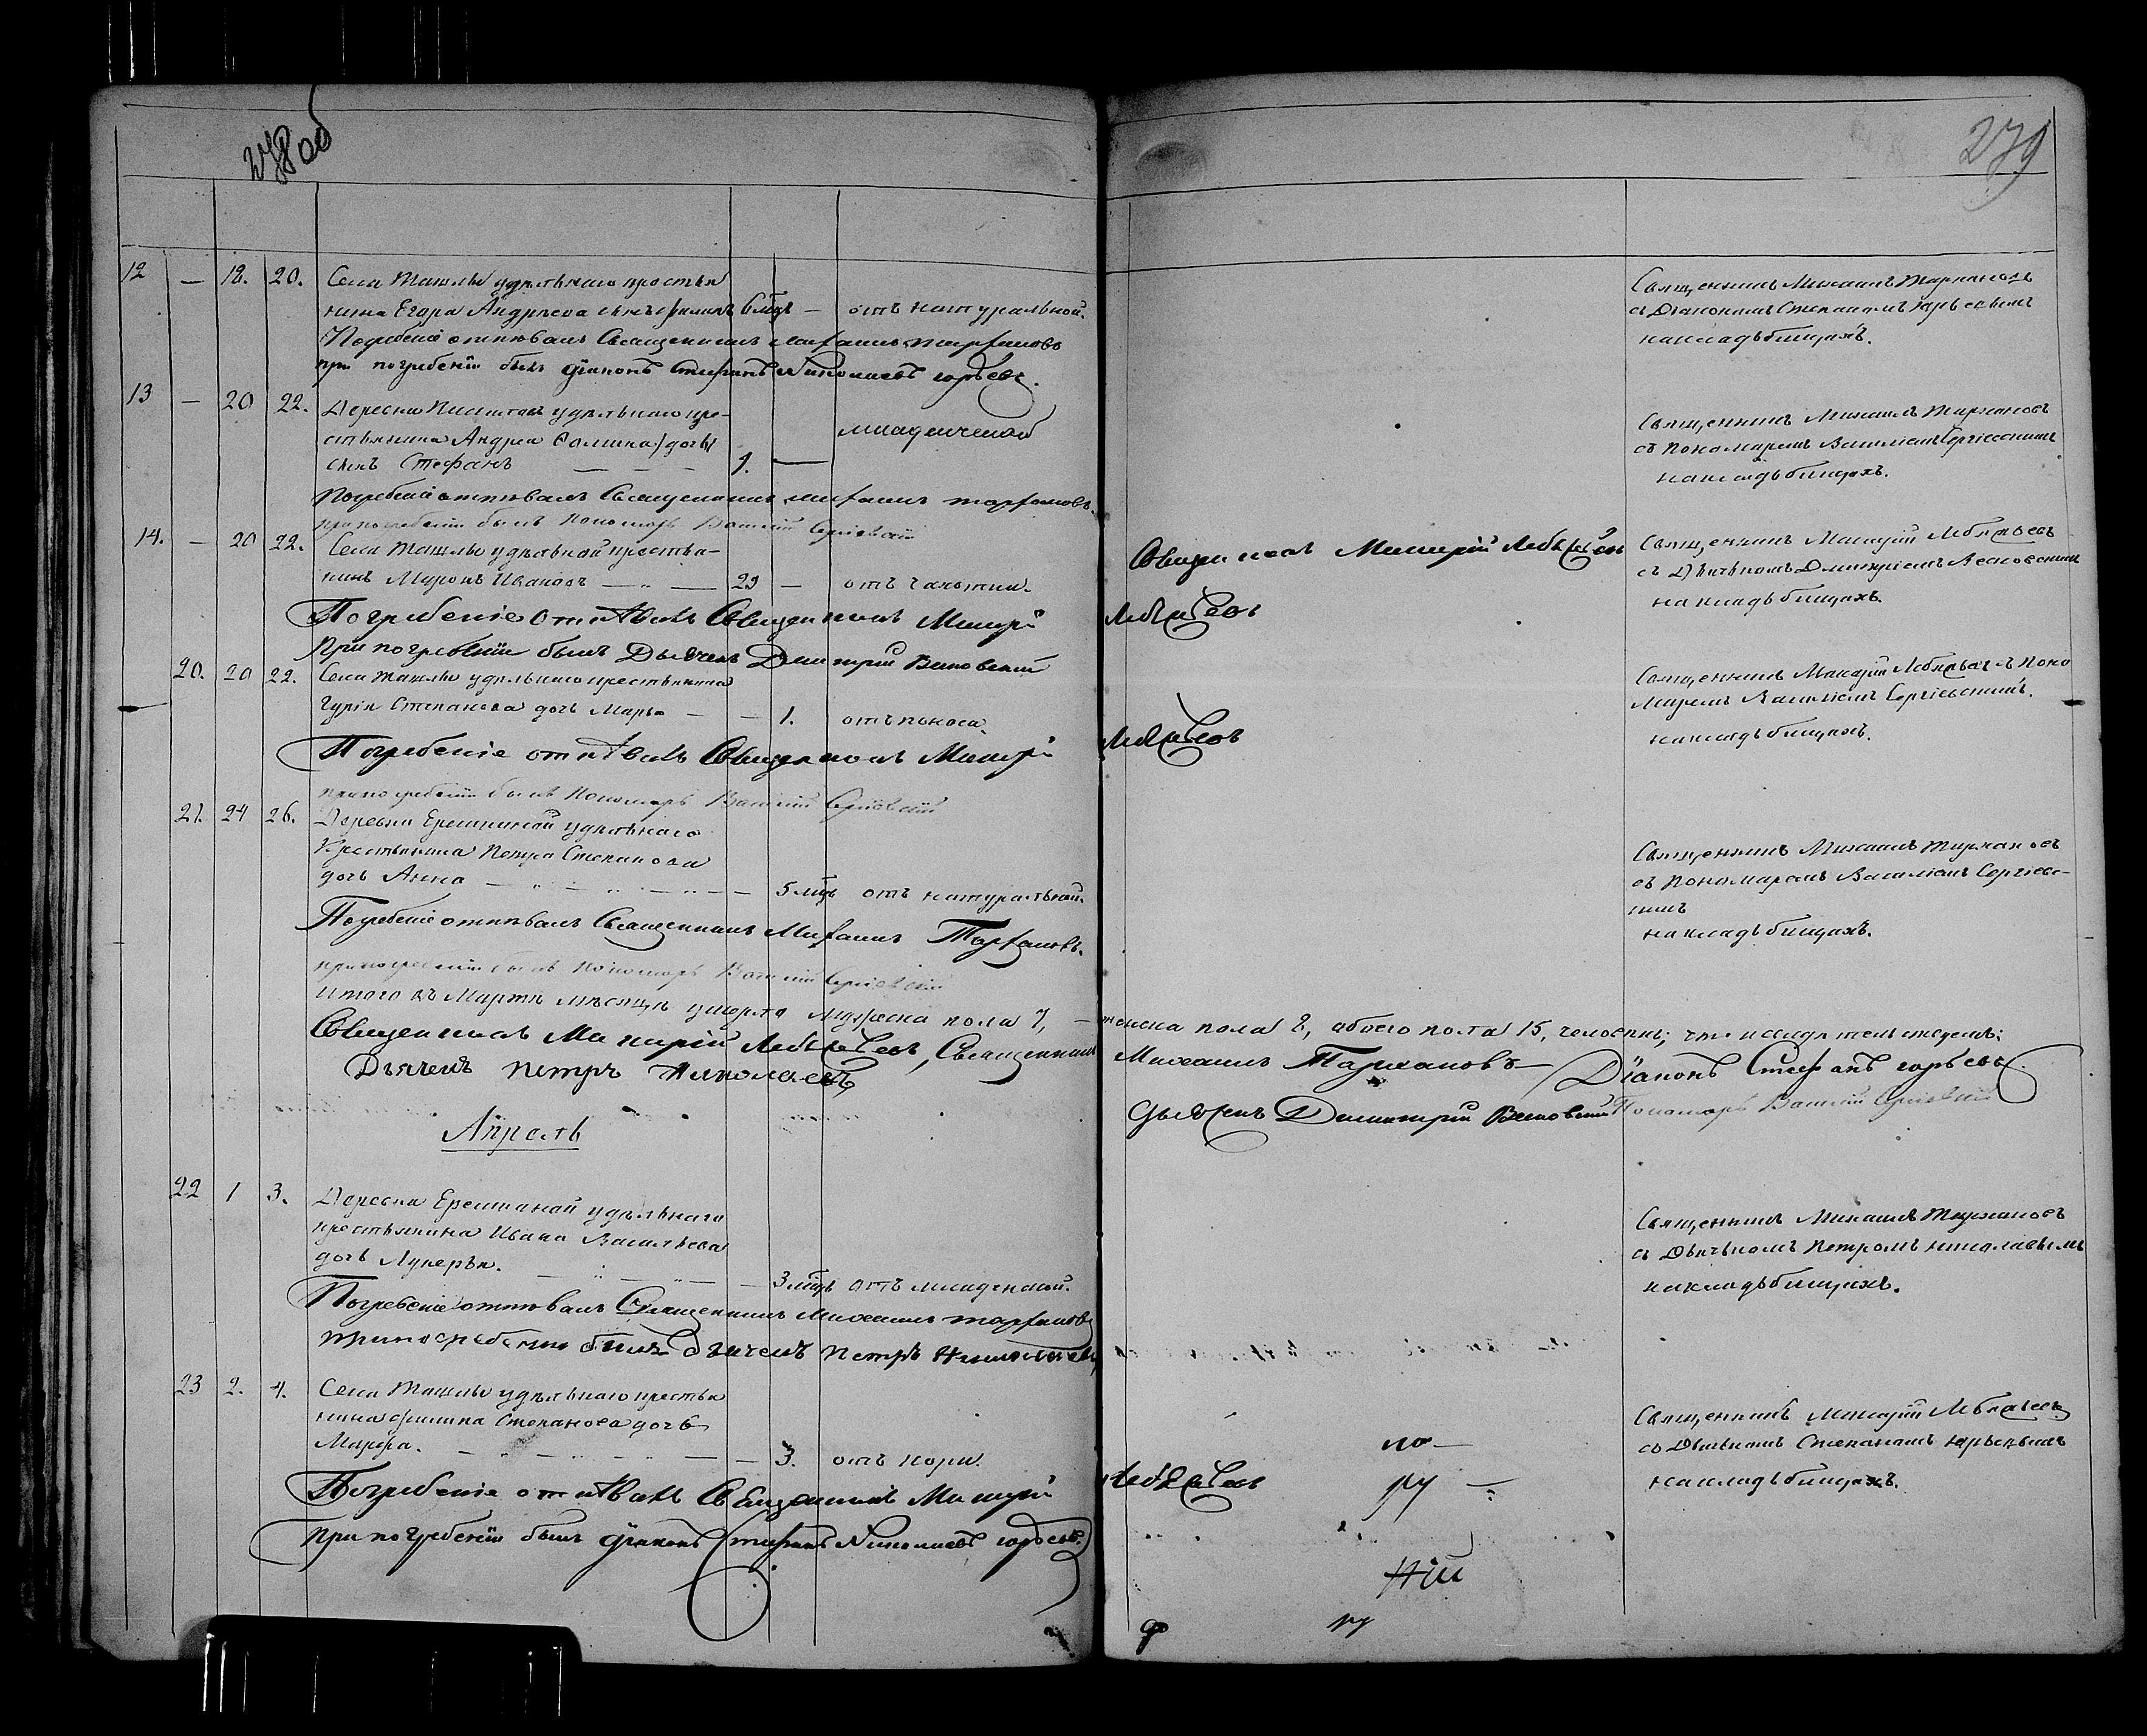 278 об
279
12 — 18. 20. Села Ташлы удѣльнаго крестья
нина Егора Андреева сынъ Филипъ 6 мцъ — отъ натуральной.
Погребеніе отпѣвалъ Священникъ Михаилъ Тархановъ
при погребеніи былъ Діаконъ Стефанъ Николаевъ Юрьевъ.
Священникъ Михаилъ Тархановъ
съ Діакономъ Стефаномъ Юрьевымъ
на кладьбищахъ.
13 — 20 22. Деревни удѣльнаго кре-
стьянина Андрея Фомина
сынъ Стефанъ — — — 9. — младенческой
Погребеніе отпѣвалъ Священникъ Михаилъ Тархановъ.
при погребеніи былъ Пономарь Василій Сергіевскій
Священникъ Михаилъ Тархановъ
съ Пономаремъ Василіемъ Сергіевскимъ
на кладьбищахъ.
14. — 20 22. Села Ташлы удѣльной крестья-
нинъ Миронъ Ивановъ — „ — 29 — отъ чахотки.
Погребеніе отпѣвалъ Священникъ Макарій Лебяжьевъ
При погребеніи былъ Дьячекъ Димитрій
Священникъ Макарій Лебяжьевъ
Священникъ Макарій Лебяжьевъ
съ Дьячкомъ Димитріемъ
на кладьбищахъ.
20. 20 22. Села Ташлы удѣльнаго крестьянина
Гурія Степанова дочь Марья — — 1. отъ поноса.
Погребеніе отпѣвалъ Священникъ Макарій Лебяжьевъ
при погребеніи былъ Пономарь Василій Сергіевскій
Священникъ Макарій Лебяжьевъ съ Поно
маремъ Василіемъ Сергіевскимъ.
на кладьбищахъ.
21. 24 26. Деревни Ерешкиной удѣльнаго
Крестьянина Петра Степанова
дочь Анна — „ — „ — „ — — 5 мцъ отъ натуральной.
Погребеніе отпѣвалъ Священникъ Михаилъ Тархановъ.
при погребеніи былъ Пономарь Василій Сергіевскій
Священникъ Михаилъ Тархановъ
съ Пономаремъ Василіемъ Сергіевс-
кимъ
на кладьбищахъ.
Итого въ Мартѣ мѣсяцѣ умерло мужеска пола 7, — женска пола 8, обоего пола 15, человѣкъ;
Священникъ Макарій Лебяжьевъ, Священникъ Михаилъ Тархановъ Діаконъ Стефанъ Юрьевъ.
Дьячекъ Петръ Николаевъ Дьячекъ Димитрій Пономарь Василій Сергіевскій
Апрель
22 1 3. Деревни Ерешкиной удѣльнаго
крестьянина Ивана Васильева
дочь Лукерья. — „ — „ — — 3 мцъ отъ младенской.
Погребеніе отпѣвалъ Священникъ Михаилъ Тархановъ
при погребеніи былъ дьячекъ Петръ Николаевъ
Священникъ Михаилъ Тархановъ
съ Дьячкомъ Петромъ Николаевымъ
на кладьбищахъ.
23 2. 4. Села Ташлы удѣльнаго крестья
нина Филипа Степанова дочь
Марфа. — „ — „ — „ — — 3. отъ кори.
Погребеніе отпѣвалъ Священникъ Макарій Лебяжьевъ
При погребеніи былъ Діаконъ Стефанъ Николаевъ Юрьевъ.
по —
ру —
Священникъ Макарій Лебяжьевъ
со Діакономъ Степаномъ Юрьевымъ
на кладьбищахъ.